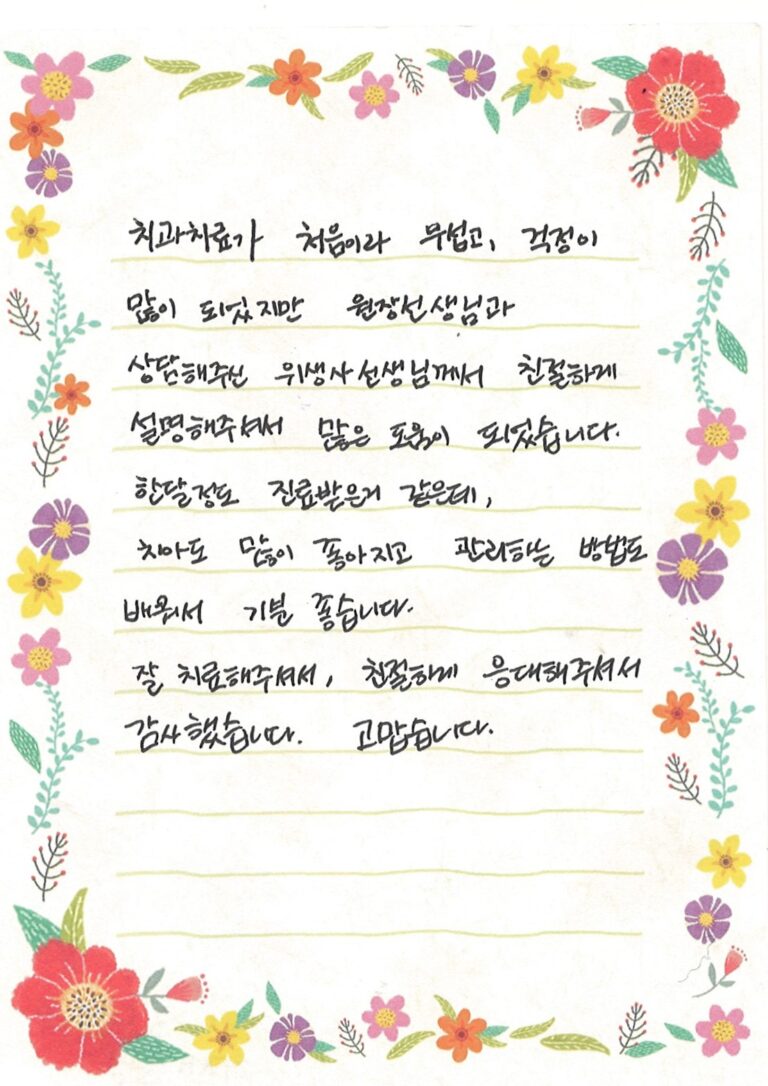 치과치료가 처음이라 무섭고, 걱정이
많이 되었지만 원장선생님과
상담해주신 위생사선생님께서 친절하게
설명해주셔서 많은 도움이 되었습니다.
한달정도 진료받은거 같은데,
치아도 많이 좋아지고 관리하는 방법도
배워서 기분 좋습니다.
잘 치료해주셔서, 친절하게 응대해주셔서
감사했습니다. 고맙습니다.